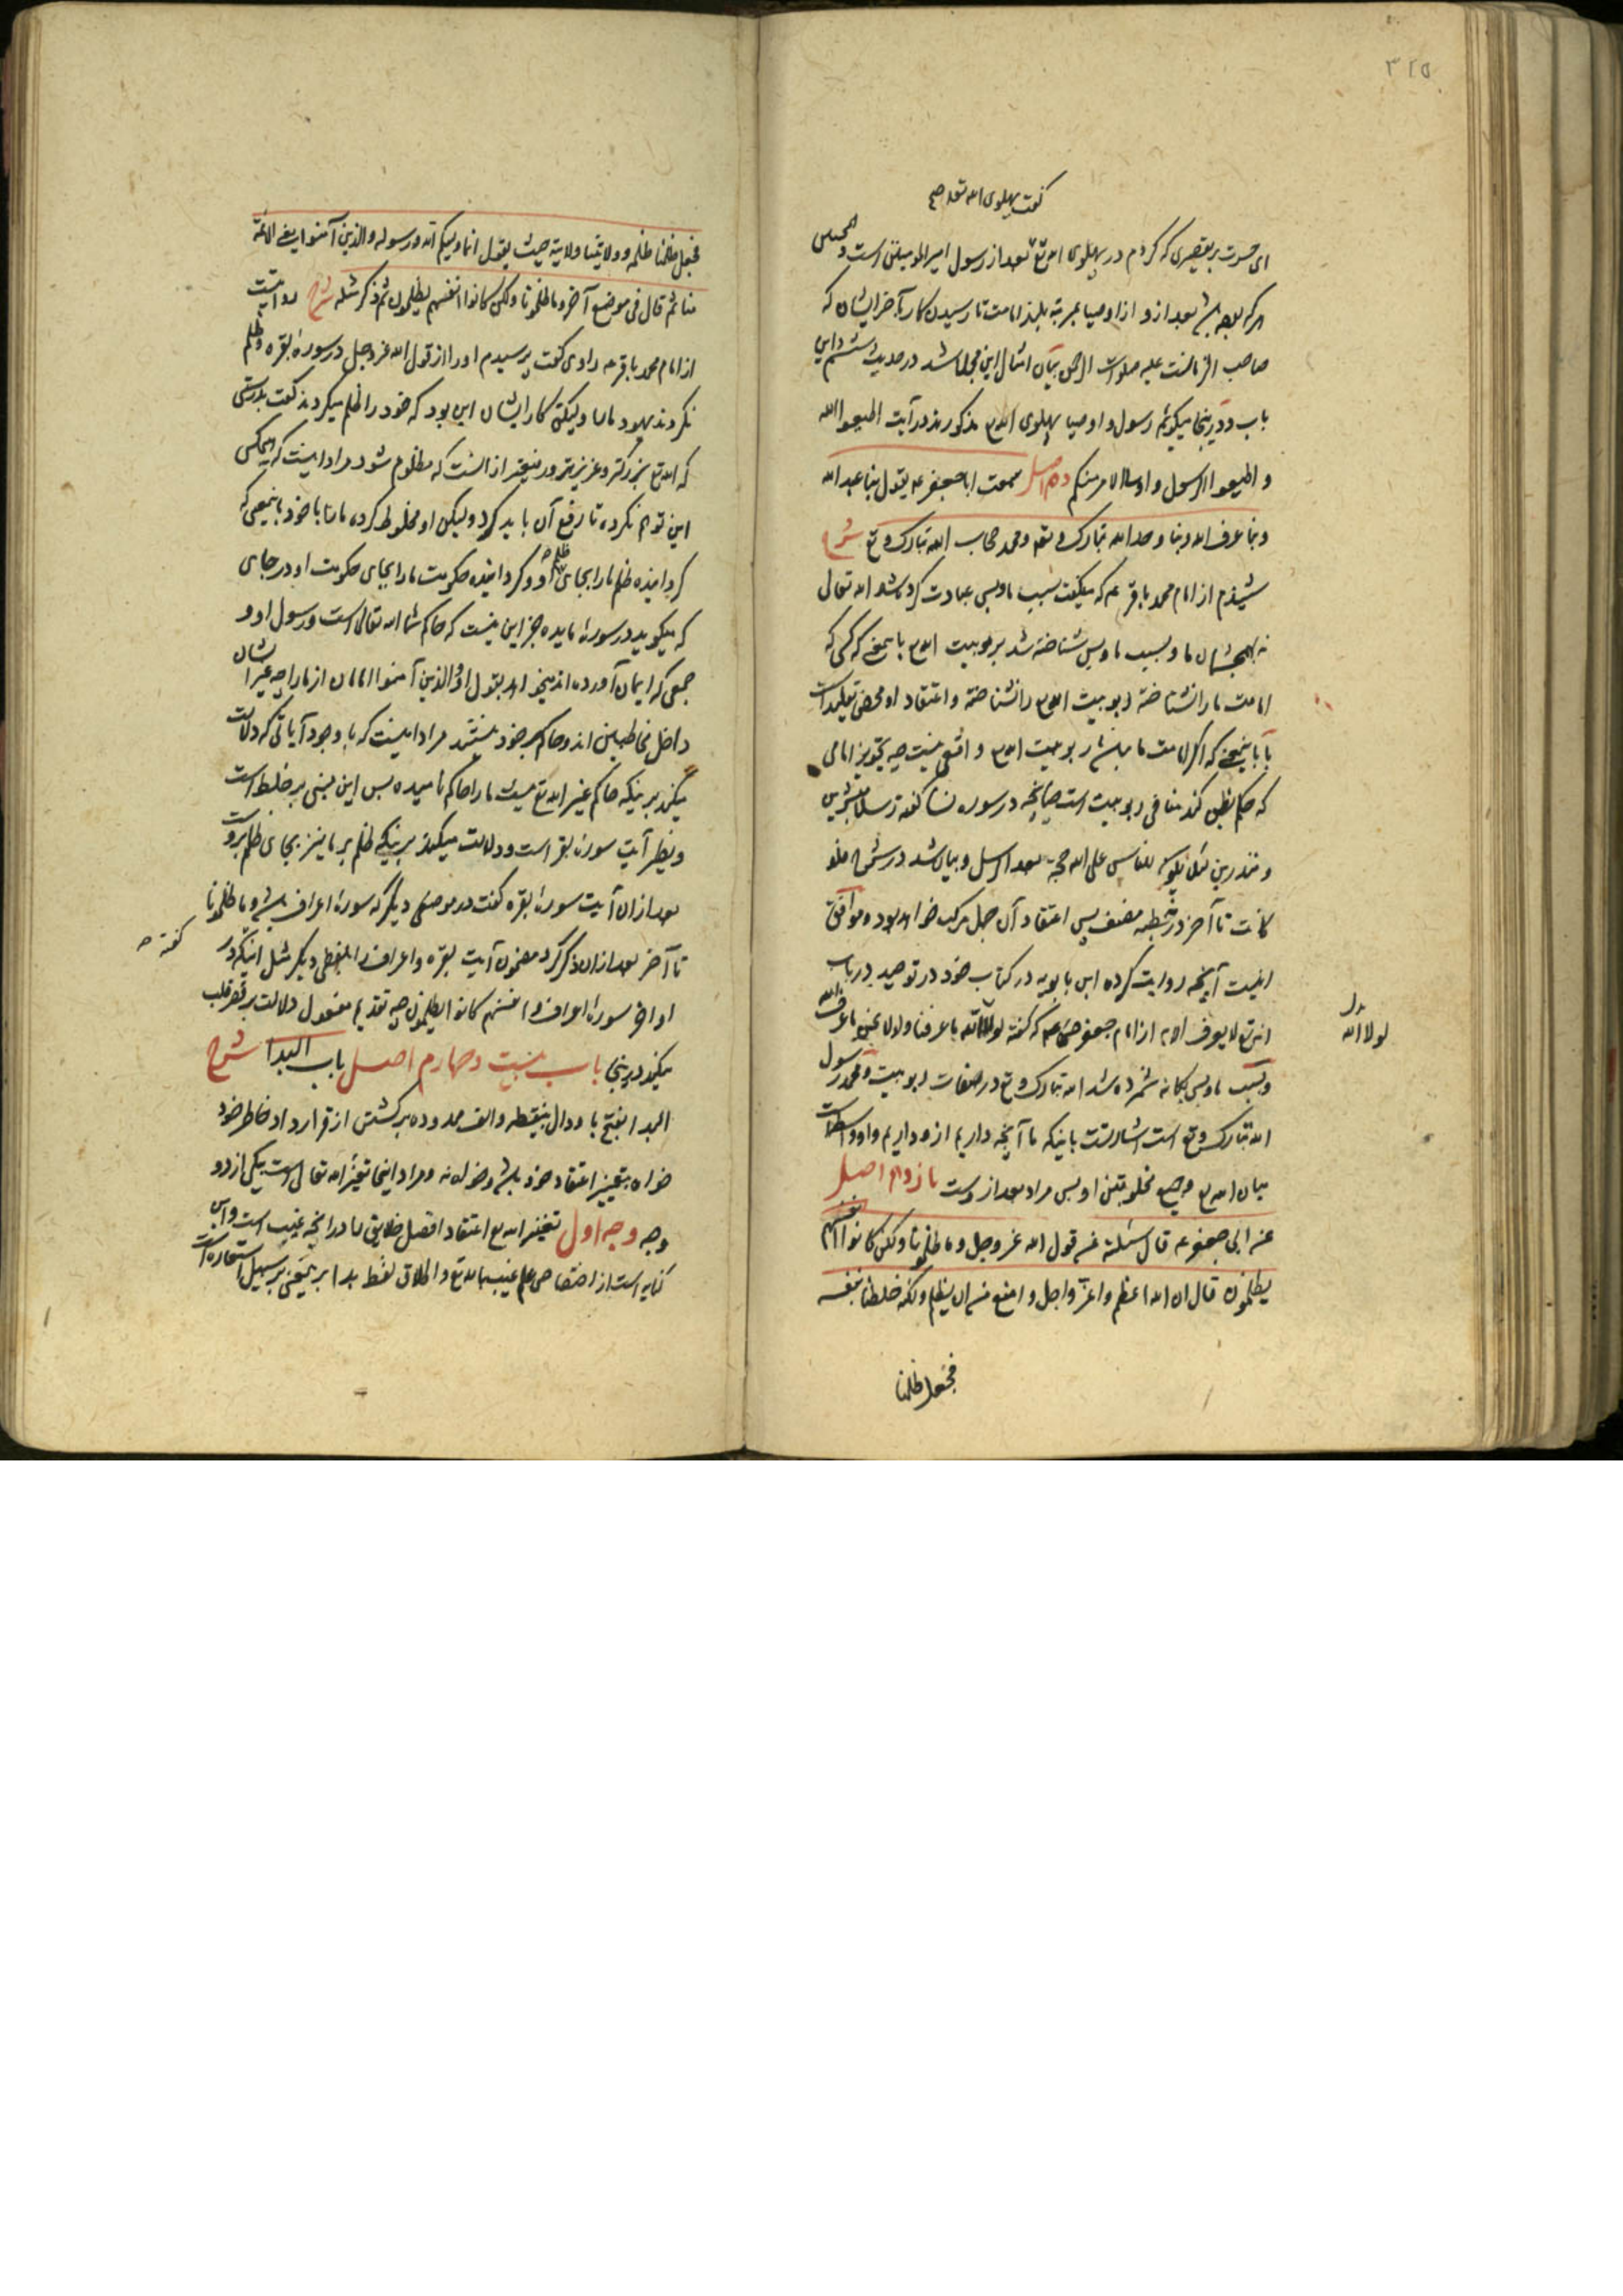 ۳۲۵
گفت پهلوی الله تعه
ای حسرت بر تقصیری که کردم در پهلوی الله تع بعد از رسول امیر المومنین است و همچنین
هر که بوده باشد بعد از و از اوصیا بمرتبه بلند امامت تا رسیدن کار بآخر ایشان که
صاحب الزمانست علیه صلوات الرحمن بیان امثال این مجملا شد در حدیث ششم این
باب و درینجا میگوئیم رسول و اوصیا پهلوی الله مذکورند در آیت اطیعوا الله
و اطیعوا الرسول و اولی الامر منکم دهم اصل سمعت ابا جعفر عه یقول بنا عبد الله
و بنا عرف الله و بنا وحد الله تبارک و تعه و محمد حجاب الله تبارک و تع شرح
شنیدم از امام محمد باقر عه که میگفت بسبب ما و بس عبادت کرده شد الله تعالی
ما و بسبب ما و بس شناخته شد بربوبیت الله باین معنی که کسی که
امامت ما را نشناخته ربوبیت الله را نشناخته و اعتقاد او محض تقلید است
یا باین معنی که اگر امامت ما نباشد ربوبیت الله واقعی نیست چه تجویز امامی
که حکم بظن کند منافی ربوبیت است چنانچه در سوره نسا گفته رسلا مبشرین
و منذرین لئلا یکون للناس علی الله حجة بعد الرسل و بیان شد در شرح فلو
کانت تا آخر در خطبه مصنف پس اعتقاد آن جهل مرکب خواهد بود و موافق
اینست آنچه روایت کرده ابن بابویه در کتاب خود در توحید در باب
انه تع لا یعرف الا به از امام جعفر صادق عه که گفته لولا الله ما عرفنا ولولا نحن ما عرف الله
بدل لولا الله
و بسبب ما و بس یگانه شمرده شد الله تبارک و تع در صفات ربوبیت و محمد رسول
الله تبارک و تع است اشارتست باینکه ما آنچه داریم ازو داریم و او واسطه است
میان الله تع و جمیع مخلوقین او پس مراد بعد از وست یازدهم اصل
عن ابی جعفر عه قال سئلته عن قول الله عز وجل وما ظلمونا ولکن کانوا انفسهم
یظلمون قال ان الله اعظم واعز واجل وامنع من ان یظلم ولکنه خلطنا بنفسه
فجعل ظلمنا
فجعل ظلمنا ظلمه وولایتنا ولایته حیث یقول انما ولیکم الله ورسوله والذین آمنوا یعنی الائمة
منا ثم قال فی موضع آخر وما ظلمونا ولکن کانوا انفسهم یظلمون ثم ذکر مثله شرح روایت است
از امام محمد باقر عه راوی گفت پرسیدم او را از قول الله عز وجل در سوره بقره و ظلم
نکردند یهود ما را ولیکن کار ایشان این بود که خود را ظلم میکردند گفت بدرستی
که الله تع بزرگتر و عزیزتر و منیع‌تر از انست که مظلوم شود مراد اینست که هیچکس
این توهم نکرده تا رفع آن باید کرد ولیکن او مخلوط کرده ما را با خود باین معنی که
گردانیده ظلم ما را بجای ظلم او و گردانیده حکومت ما را بجای حکومت او در جای
که میگوید در سوره مایده جز این نیست که حاکم شما الله تعالی است و رسول او و
جمعی که ایمان آورده اند میخواهد بقول او والذین آمنوا امامان از ما را چه غیر ایشان
داخل مخاطبین اند و حاکم بر خود نیستند مراد اینست که با وجود آیاتی که دلالت
میکند برینکه حاکم غیر الله تع نیست ما را حاکم نامیده پس این مبنی بر خلط است
و نظیر آیت سوره بقره است و دلالت میکند برینکه ظلم بر ما نیز بجای ظلم بروست
بعد ازان آیت سوره بقره گفت در موضعی دیگر که سوره اعراف باشد وما ظلمونا
تا آخر بعد ازان ذکر کرد مضمون آیت بقره و اعراف را بلفظی دیگر مثل اینکه در
گفته
اواخر سوره اعراف وانفسهم کانوا یظلمون چه تقدیم مفعول دلالت بر قصر قلب
میکند درینجا باب بیست و چهارم اصل باب البدا شرح
البدا بفتح با و دال بینقطه و الف ممدوده برگشتن از قرارداد خاطر خود
خواه بتغییر اعتقاد خود باشد و خواه نه و مراد اینجا تغییر الله تعالی است یکی از دو
وجه وجه اول تغییر الله تع اعتقاد افضل خلایق را در آنچه غیب است و این
کنایه است از اختصاص علم غیب بالله تع و اطلاق لفظ بدا بر این معنی بر سبیل استعاره است